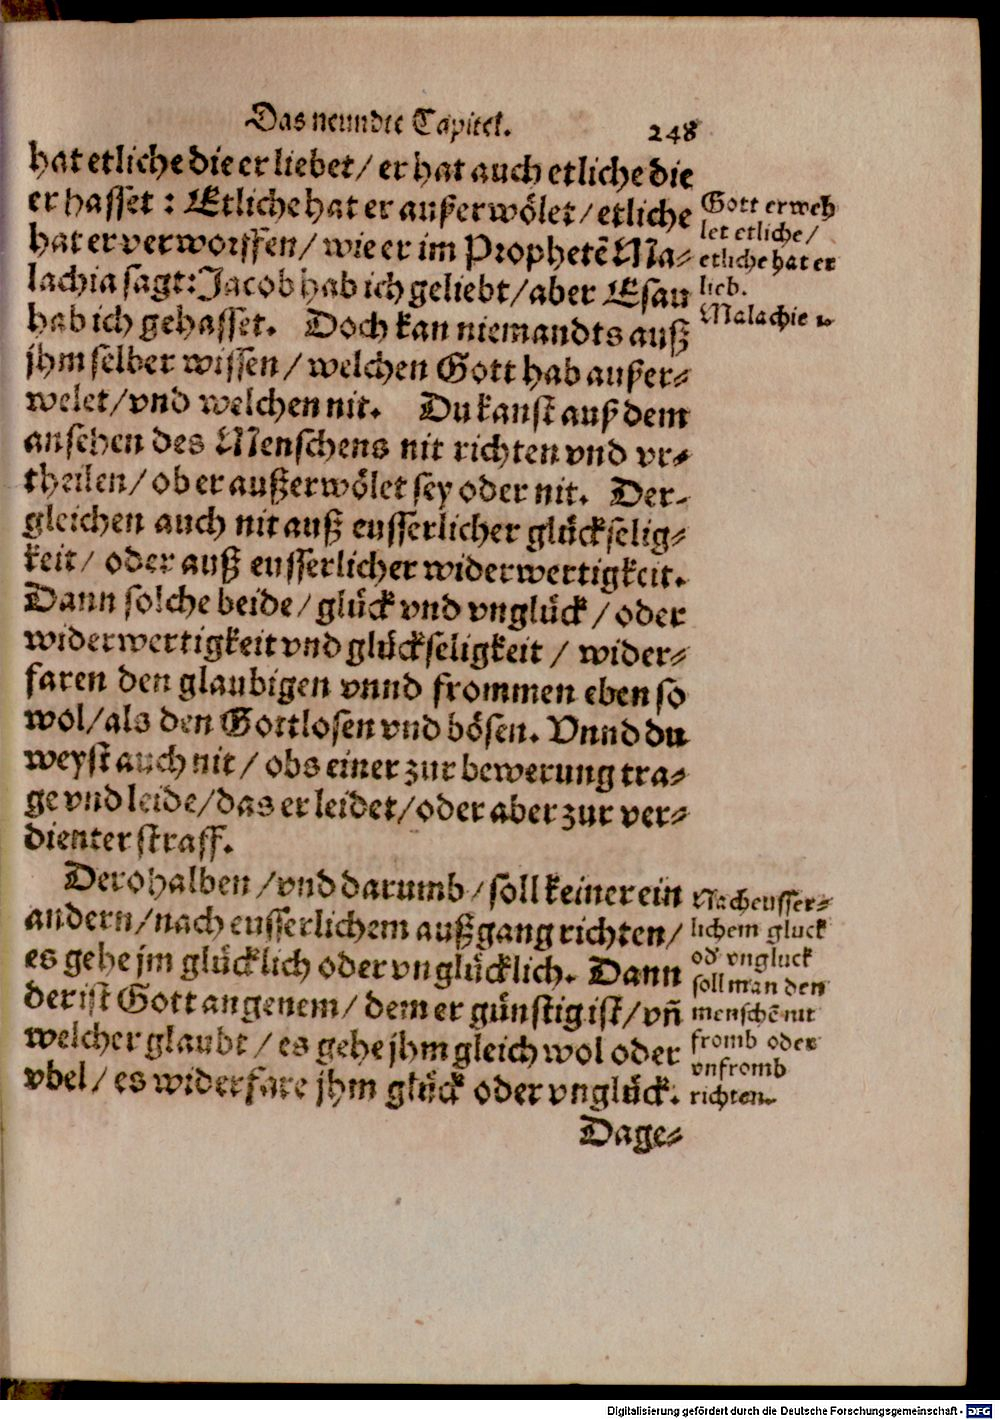 Das neundte Capitel. 248
hat etliche die er liebet/ er hat auch etliche die
er hasset : Etliche hat er außerwölet/ etliche
hat er verworffen/ wie er im Prophetē Ma-
lachia sagt: Jacob hab ich geliebt/ aber Esau
hab ich gehasset. Doch kan niemandts auß
jhm selber wissen/ welchen Gott hab außer-
welet/ vnd welchen nit. Du kanst auß dem
ansehen des Menschens nit richten vnd vr-
theilen/ ob er außerwölet sey oder nit. Der-
gleichen auch nit auß eusserlicher glückselig-
keit/ oder auß eusserlicher widerwertigkeit.
Dann solche beide/ glück vnd vnglück/ oder
widerwertigkeit vnd glückseligkeit/ wider-
faren den glaubigen vnnd frommen eben so
wol/ als den Gottlosen vnd bösen. Vnnd du
weyst auch nit/ obs einer zur bewerung tra-
ge vnd leide/ das er leidet/ oder aber zur ver-
dienter straff.
Derohalben/ vnd darumb/ soll keiner ein
andern/ nach eusserlichem außgang richten/
es gehe jm glücklich oder vnglücklich. Dann
der ist Gott angenem/ dem er günstig ist/ vñ
welcher glaubt/ es gehe jhm gleich wol oder
vbel/ es widerfare jhm glück oder vnglück.
Dage-
Gott erweh
let etliche/
etliche hat er
lieb.
Malachie 1.
Nach eusser-
lichem gluck
od vngluck
soll man den
menschē nit
fromb oder
vnfromb
richten.
Digitalisierung gefördert durch die Deutsche Forschungsgemeinschaft - DFG